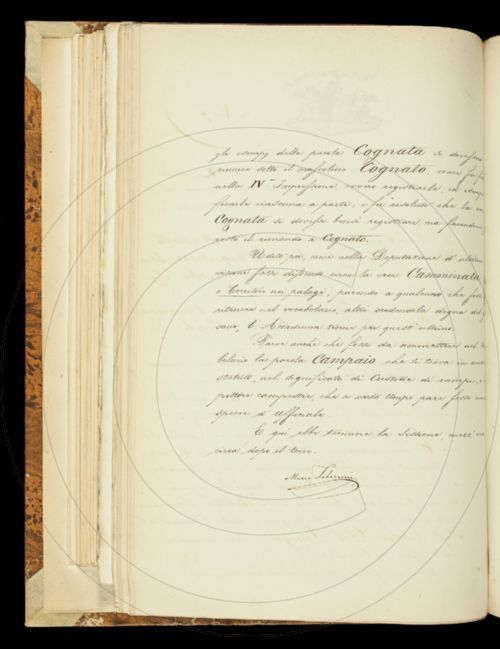 gli esempj della parola Cognata si dovessero
riunire sotto il mascolino Cognato, come fu fatto
nella IV Impressione, ovvero registrarli, ed
ciascuna a parte; e fu risoluto che la
Cognata si dovesse bensì registrare, ma facendone
poi il rimando a Cognato.
Udito poi, come nella Deputazione
fosse differenza circa la voce Camminata
o parendo a qualcuno che fosse
ritenuta nel vocabolario, altri credendola degna del
l'Accademia tenne per questi ultimi.
Parve anche che fosse da ammettere nel
la parola Campaio che si trova in
statuto, nel significato di Custode di campi, o
che a certo tempo pare fosse una
specie d'Uffiziale.
E qui ebbe termine la Sessione, mezz'
circa dopo il tocco.